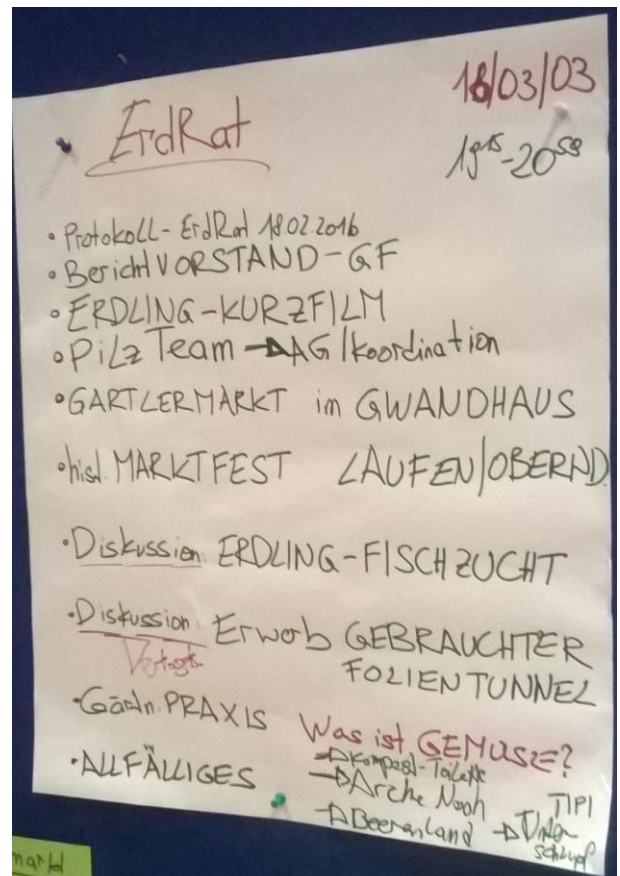 ErdRat
16/03/03
19¹⁵-20⁵⁹
• Protokoll - ErdRat 18.02.2016
• Bericht VORSTAND-GF
• ERDLING-KURZFILM
• PiLz Team → AG/koordination
• GARTLERMARKT im GWANDHAUS
• hist. MARKTFEST LAUFEN/OBERND.
• Diskussion: ERDLING-FISCHZUCHT
• Diskussion: Erwerb GEBRAUCHTER
Vertagt
FOLIENTUNNEL
• Gärtn. PRAXIS
Was ist GEMÜSE?
• ALLFÄLLIGES
→ Kompost-Toilette
→ Arche Noah
→ Beerenland → TIPI
Unterschlupf
markt